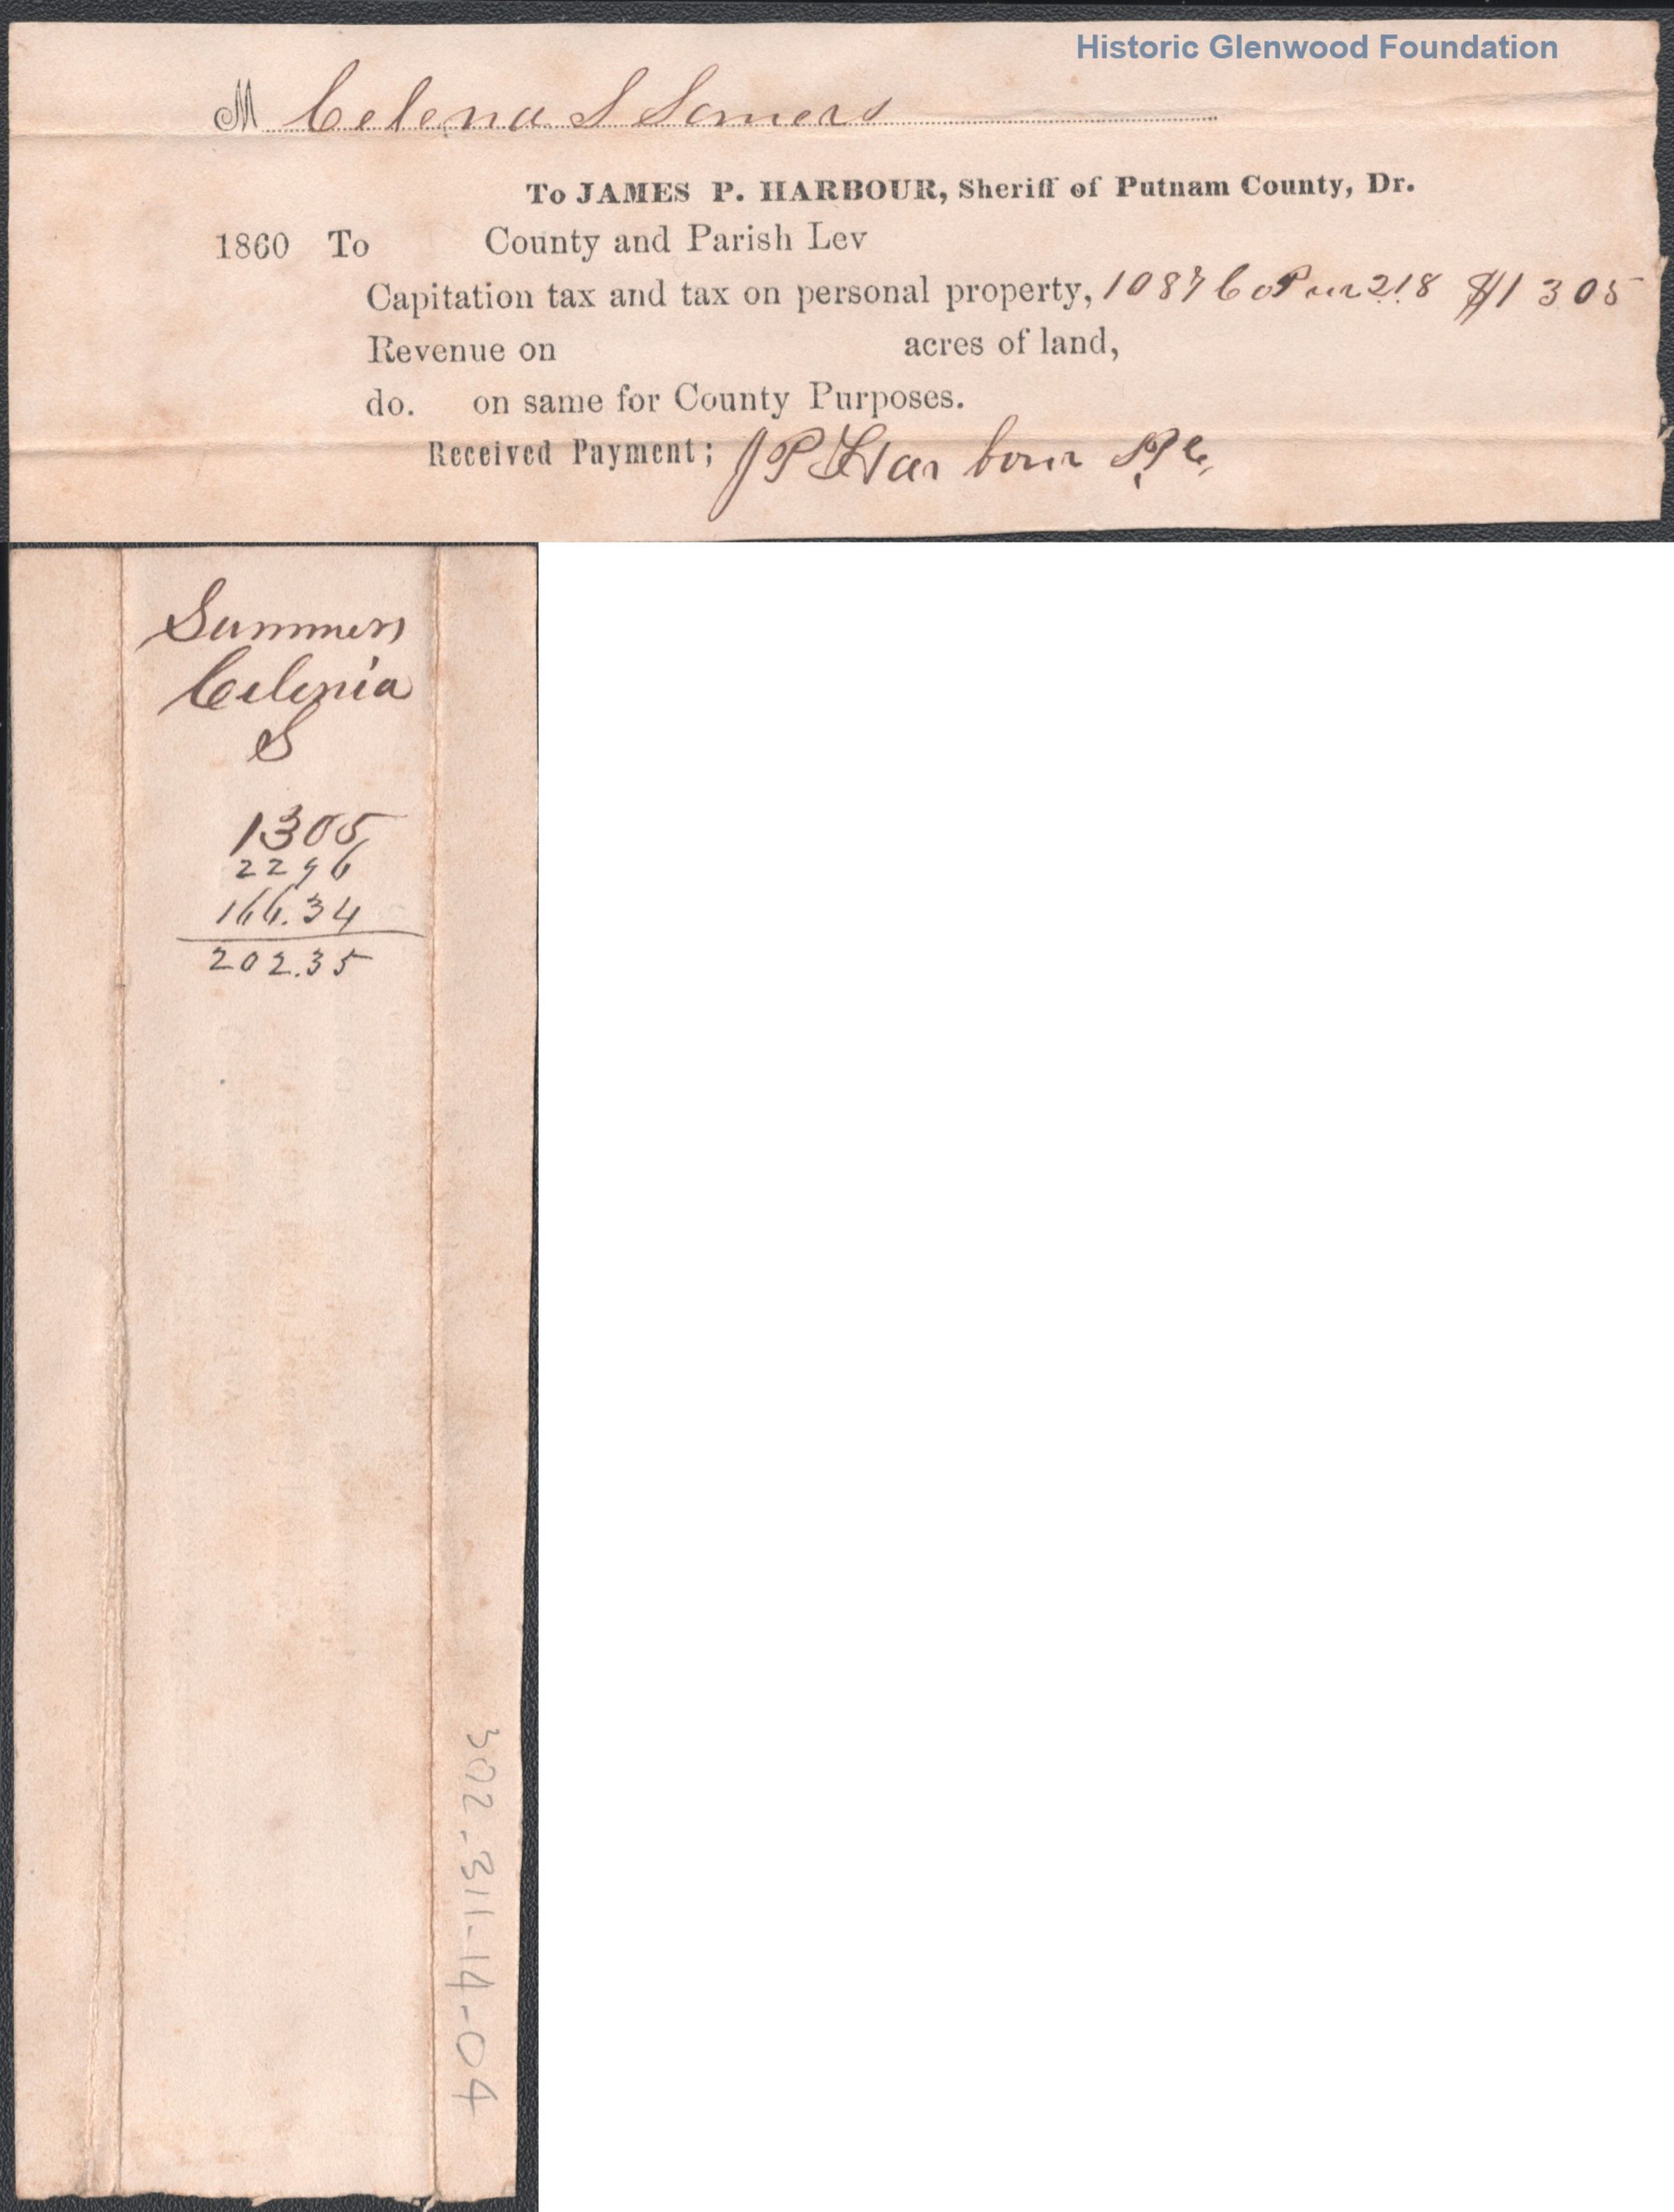 Historic Glenwood Foundation
M Celena S Somers
To JAMES P. HARBOUR, Sheriff of Putnam County, Dr.
1860 To County and Parish Lev
Capitation tax and tax on personal property, 1087 Co Pur 218 $13 05
Revenue on acres of land,
do. on same for County Purposes.
Received Payment; J P Harbour S.P.C.
Summers
Celenia
S
1305
2296
166.34
202.35
302-311-14-04